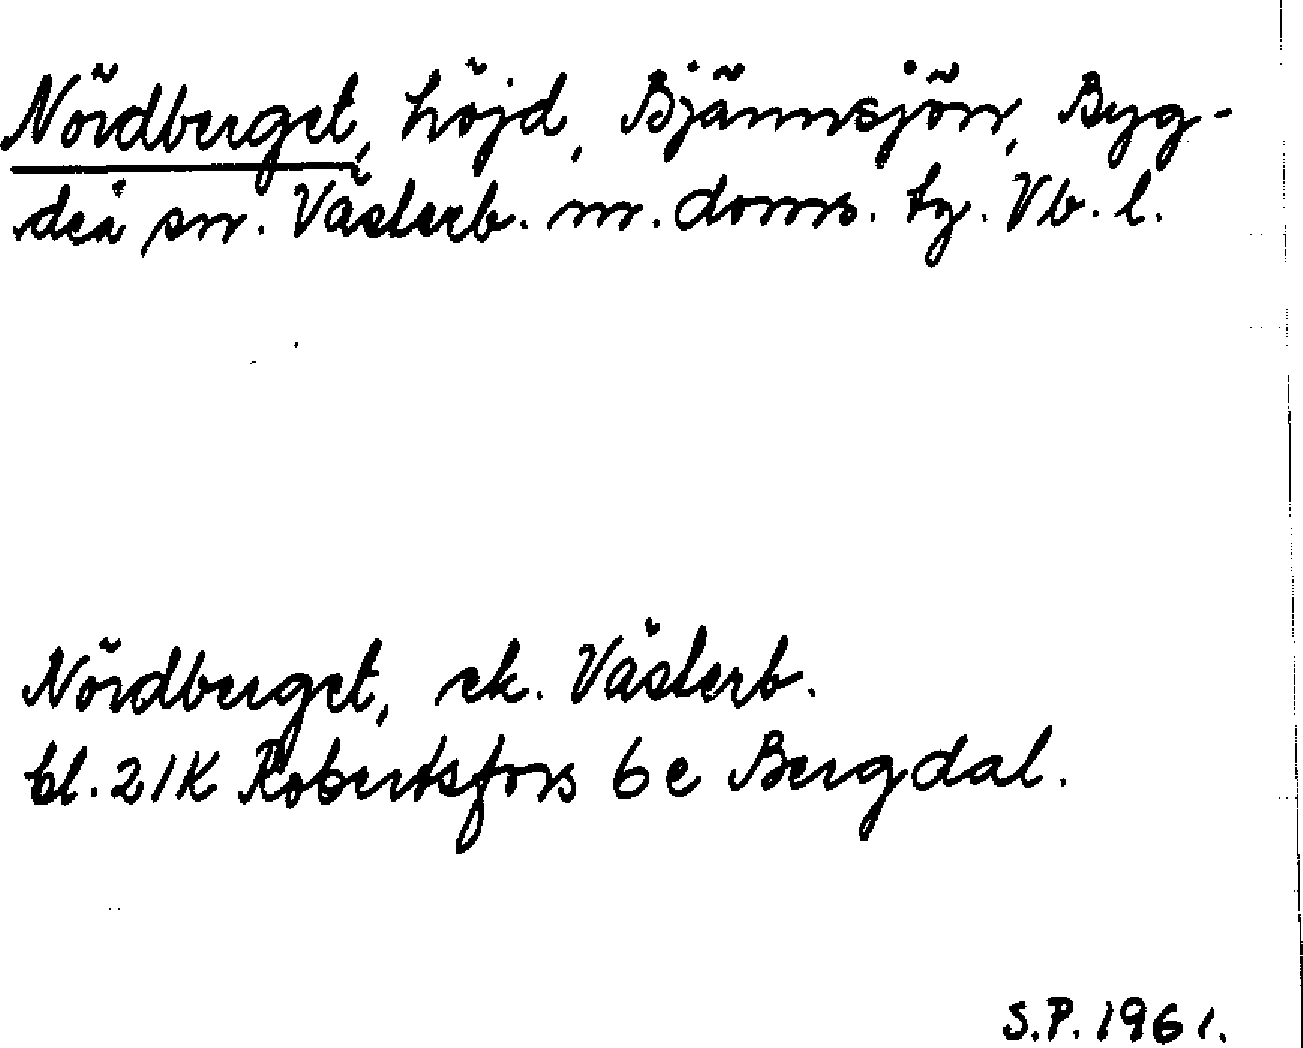 Nördberget, höjd, Bjännsjön, Byg-
deå sn. Västerb. m. doms. tg. Vb. l.
Nördberget, ek. Västerb.
bl. 21K Robertsfors 6 e Bergdal.
S.P. 1961.